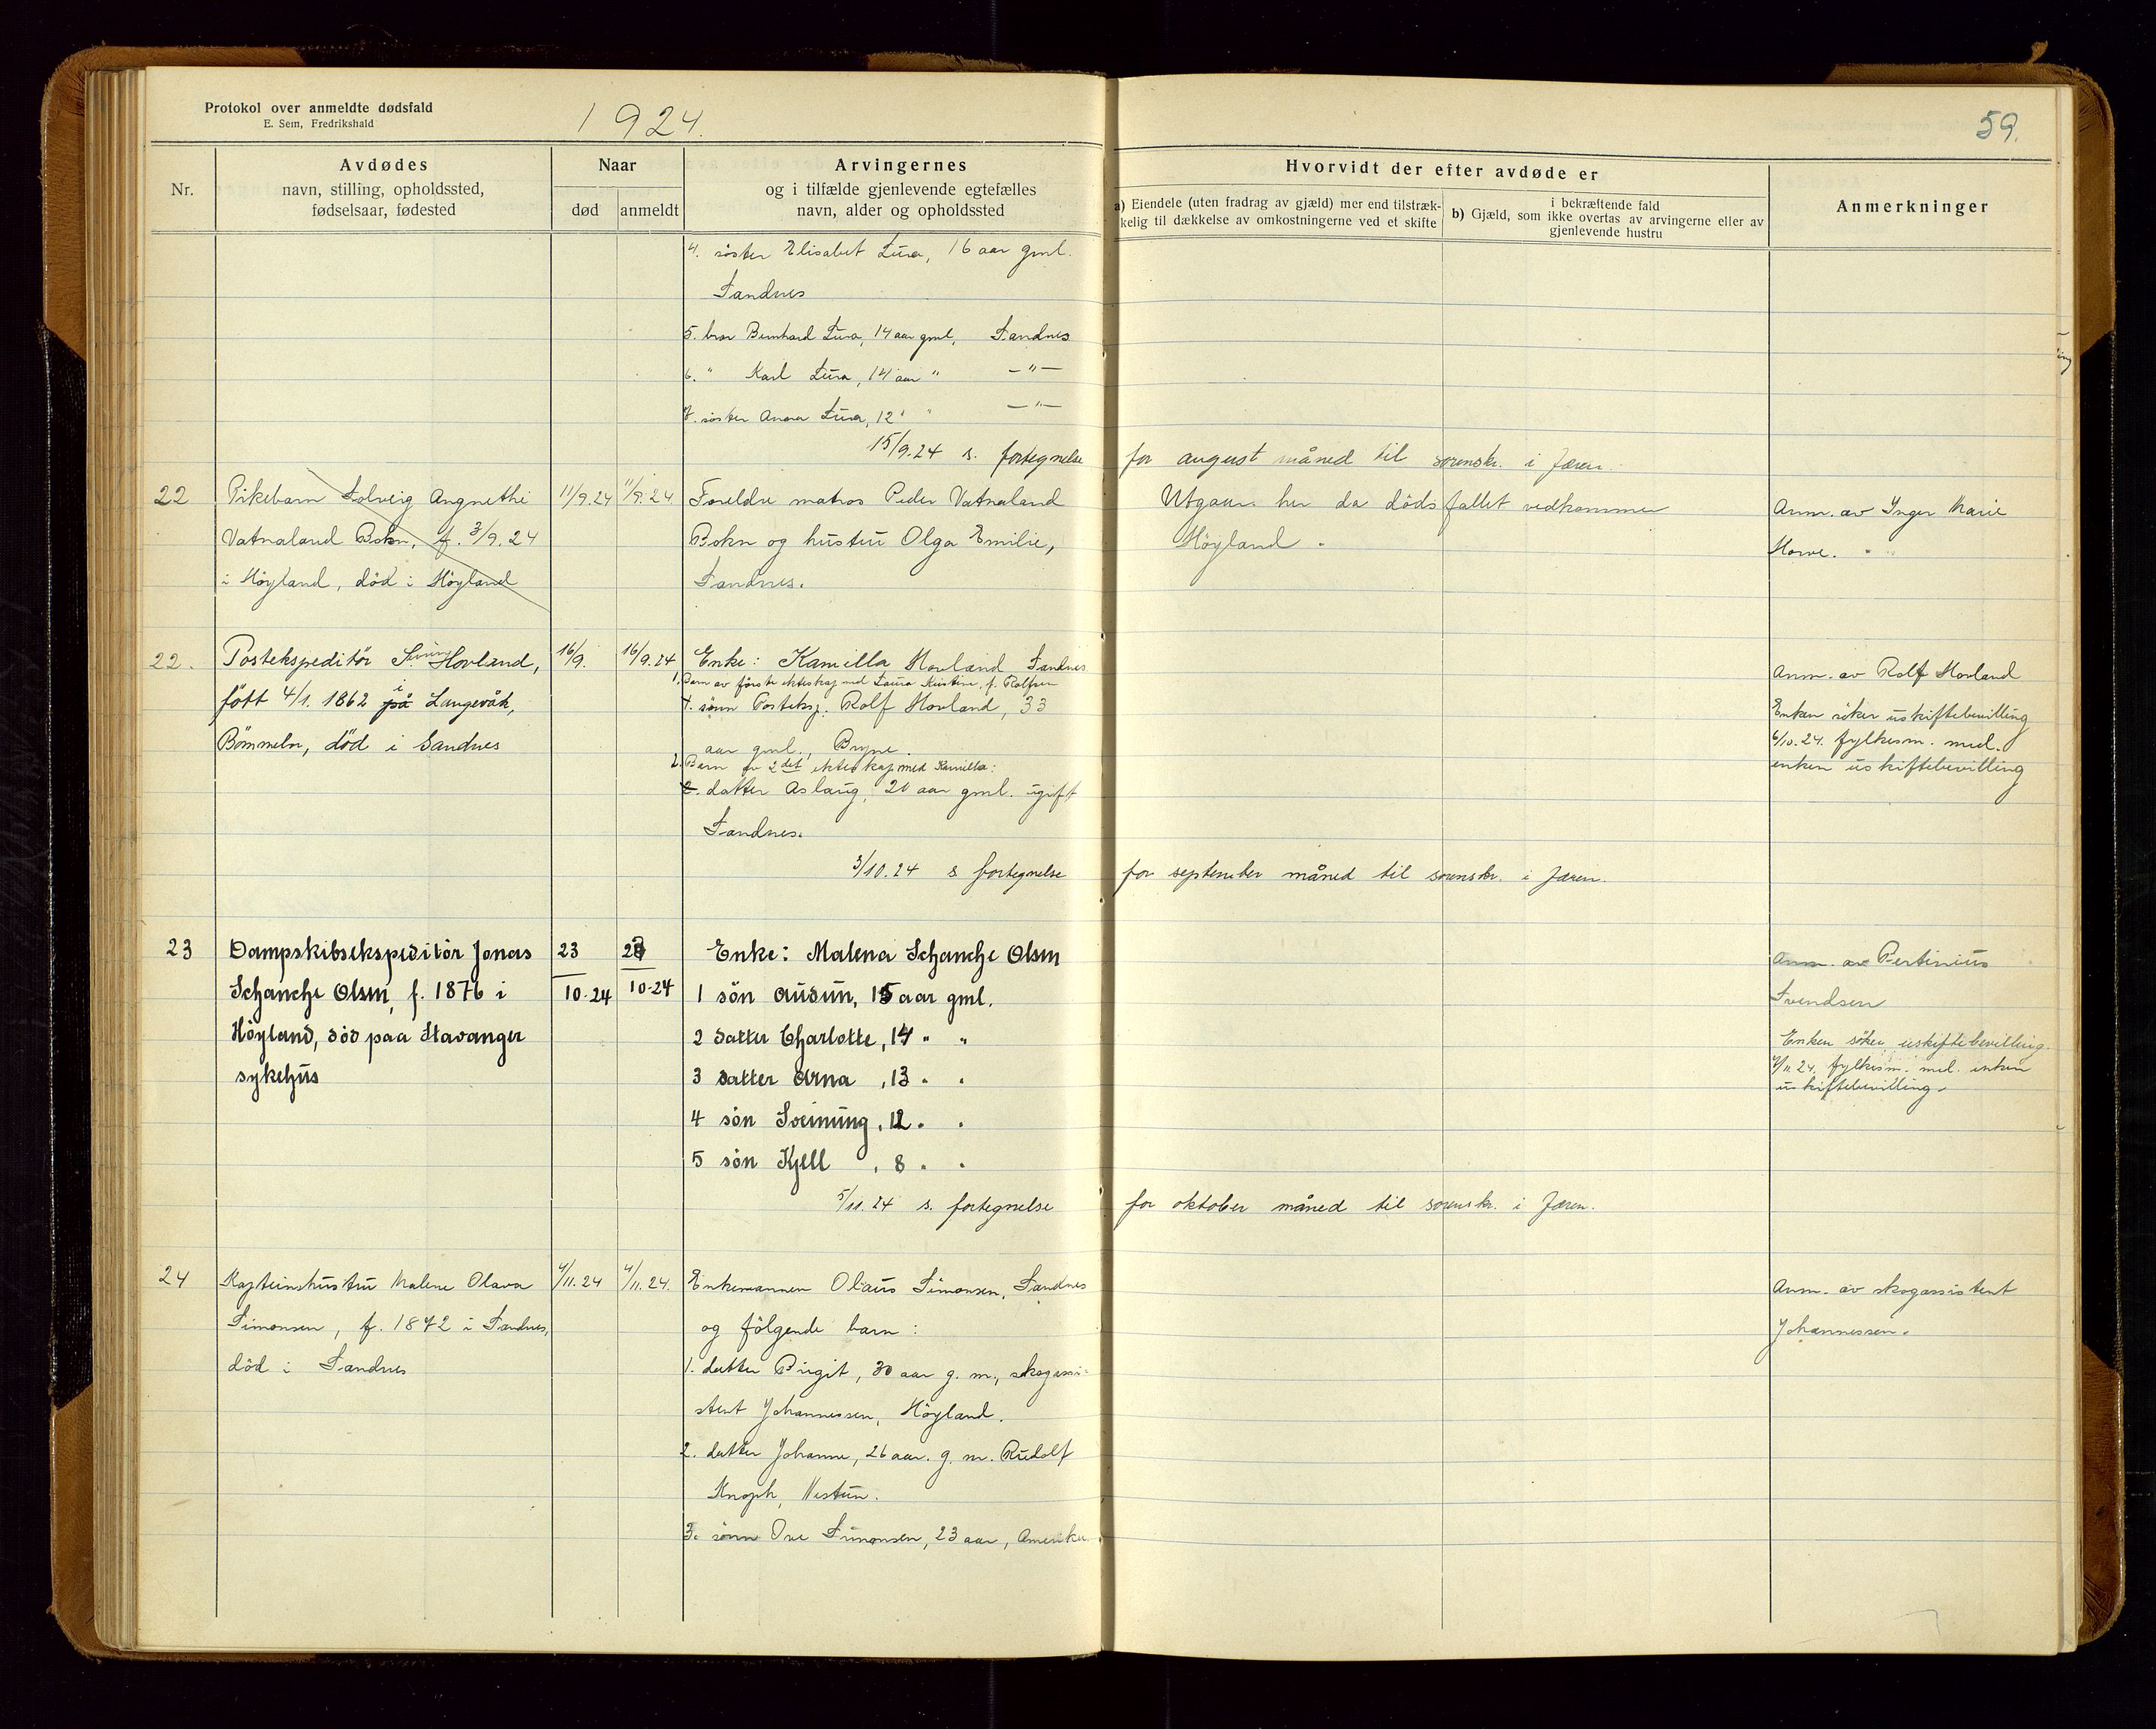 Protokol over anmeldte dødsfald
E. Sem, Fredrikshald
1924.
59.
Nr.
Avdødes
navn, stilling, opholdssted,
fødselsaar, fødested
Naar
død
anmeldt
Arvingernes
og i tilfælde gjenlevende egtefælles
navn, alder og opholdssted
Hvorvidt der efter avdøde er
a) Eiendele (uten fradrag av gjæld) mer end tilstræk-
kelig til dækkelse av omkostningerne ved et skifte
i bekræftende fald
b) Gjæld, som ikke overtas av arvingerne eller av
gjenlevende hustru
Anmerkninger
4. søster Elisabet Lura, 16 aar gml.
Sandnes
5. bror Bernhard Lura, 14 aar gml, Sandnes
6. " Karl Lura, 14 aar " — " —
7. søster Anna Lura, 12 " " — " —
15/9.24 s. fortegnelse for august måned til sorenskr. i Jæren
22
Pikebarn Solveig Angnethe
Vatnaland Bokn, f. 3/9.24
i Höyland, död i Höyland
11/9.24
11/9.24
Foreldre matros Peder Vatnaland
Bokn og hustru Olga Emilie,
Sandnes.
Utgaar her da dödsfallet vedkommer
Höyland.
Anm. av Inger Marie
Hove.
22.
Postekspeditör Hovland,
født 4/1. 1862 på i Langevåk,
Bömmeln, död i Sandnes
16/9.
16/9.24
Enke: Kamilla Hovland Sandnes
1. Barn av første ekteskap med Laura Kristine, f. Rolfsen
1. sönn Posteksp. Rolf Hovland, 33
aar gml., Bryne.
2. Barn av 2det ekteskap med Kamilla:
2. datter Aslaug, 20 aar gml. ugift
Sandnes.
Anm. av Rolf Hovland
Enken söker uskiftebevilling
6/10.24. fylkesm. med.
enken uskiftebevilling
3/10.24 s. fortegnelse for september måned til sorenskr. i Jæren.
23
Dampskibsekspeditör Jonas
Schanche Olsen, f. 1876 i
Höyland, död paa Stavanger
sykehus
23
10-24
10-24
Enke: Malena Schanche Olsen
1 sön Audun, 15 aar gml.
2 datter Charlotte, 14 " "
3 datter Arna, 13 " "
4 sön Sveinung, 12 " "
5 sön Kjell, 8 " "
Anm. av Pertinius
Svendsen
Enken söker uskiftebevilling.
/11.24. fylkesm. med. enken
uskiftebevilling.
5/11.24 s. fortegnelse for oktober måned til sorenskr. i Jæren.
24
Kapteinshustru Malene Olava
Simonsen, f. 1872 i Sandnes,
död i Sandnes
4/11.24
4/11.24.
Enkemannen Olaus Simonsen, Sandnes
og følgende barn:
1. datter Birgit, 30 aar g. m., skogassi-
stent Johannessen, Höyland.
2. datter Johanne, 26 aar. g. m. Rudolf
Knoph,
3. sönn Ove Simonsen, 23 aar, Amerika
Anm. av skogassistent
Johannessen.